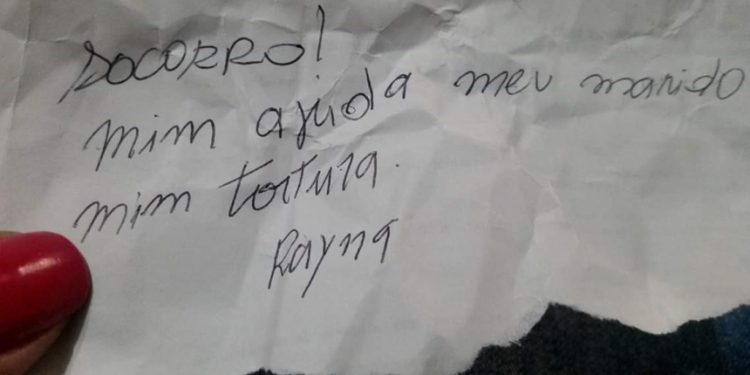 SOCORRO!
mim ajuda meu marido
mim tortura.
Rayna